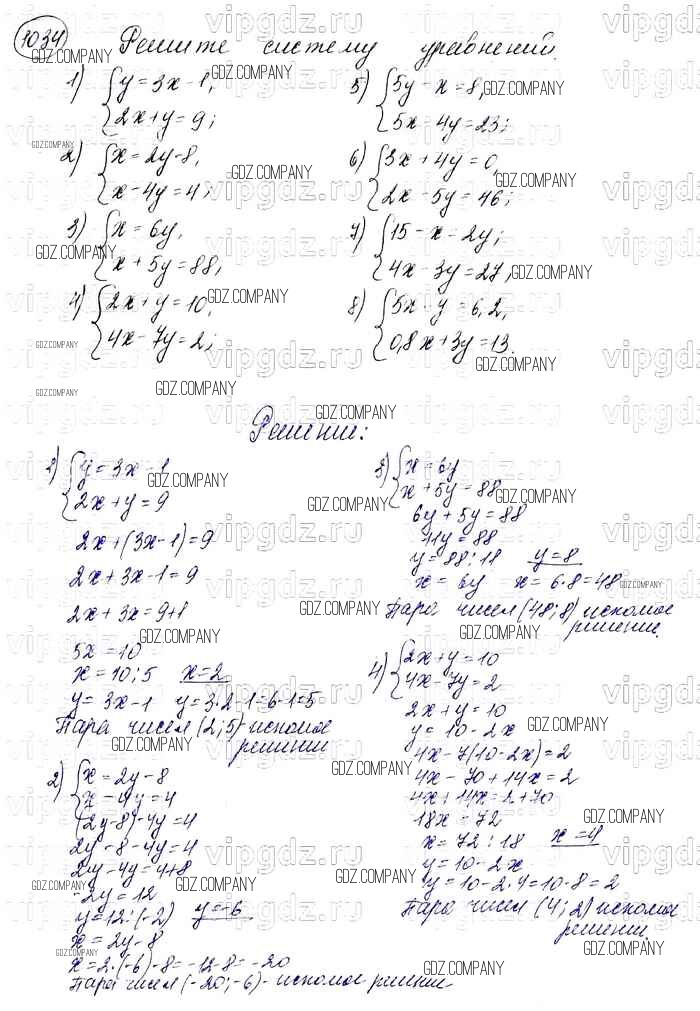 1034
Решите систему уравнений.
1) { y = 3x - 1,
2x + y = 9;
2) { x = 2y - 8,
x - 4y = 4;
3) { x = 6y,
x + 5y = 88,
4) { 2x + y = 10,
4x - 7y = 2;
5) { 5y - x = 8,
5x - 4y = 23;
6) { 3x + 4y = 0,
2x - 5y = 46;
7) { 15 - x - 2y;
4x - 3y = 27,
8) { 5x - y = 6,2,
0,8x + 3y = 13.
Решение:
1) { y = 3x - 1
2x + y = 9
2x + (3x - 1) = 9
2x + 3x - 1 = 9
2x + 3x = 9 + 1
5x = 10
x = 10 : 5 x = 2
y = 3x - 1 y = 3·2 - 1 = 6 - 1 = 5
Пара чисел (2; 5) - искомое
решение
2) { x = 2y - 8
x - 4y = 4
(2y - 8) - 4y = 4
2y - 8 - 4y = 4
2y - 4y = 4 + 8
-2y = 12
y = 12 : (-2) y = -6
x = 2y - 8
x = 2·(-6) - 8 = -12 - 8 = -20
Пара чисел (-20; -6) - искомое решение
3) { x = 6y
x + 5y = 88
6y + 5y = 88
11y = 88
y = 88 : 11 y = 8
x = 6y x = 6·8 = 48
Пара чисел (48; 8) искомое
решение.
4) { 2x + y = 10
4x - 7y = 2
2x + y = 10
y = 10 - 2x
4x - 7(10 - 2x) = 2
4x - 70 + 14x = 2
4x + 14x = 2 + 70
18x = 72
x = 72 : 18 x = 4
y = 10 - 2x
y = 10 - 2·4 = 10 - 8 = 2
Пара чисел (4; 2) искомое
решение.
vipgdz.ru
GDZ.COMPANY